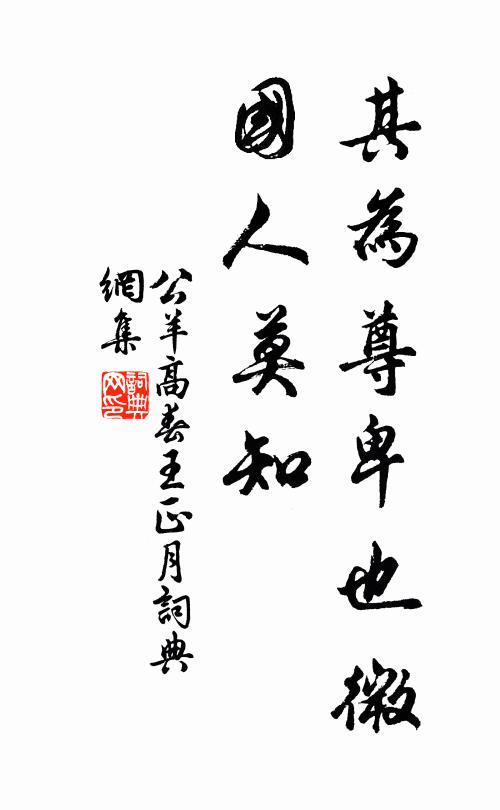 其為尊卑也微
國人莫知
公羊高春王正月詞典
網集
詞典
网印